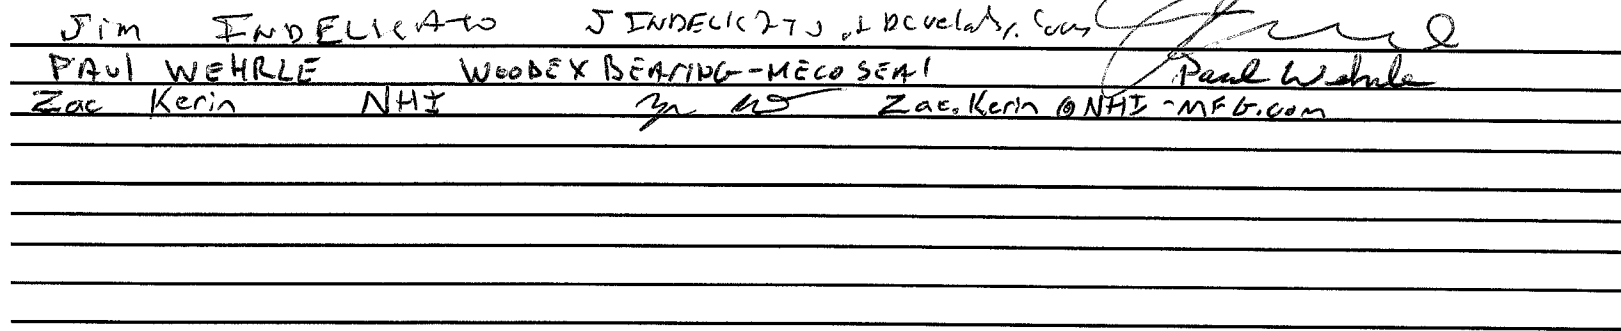 Jim INDELICATO
PAUL WEHRLE WOODEX BEARING-MECO SEAL Paul Wehrle
Zac Kerin NHI Zac.Kerin@NHI-MFG.com